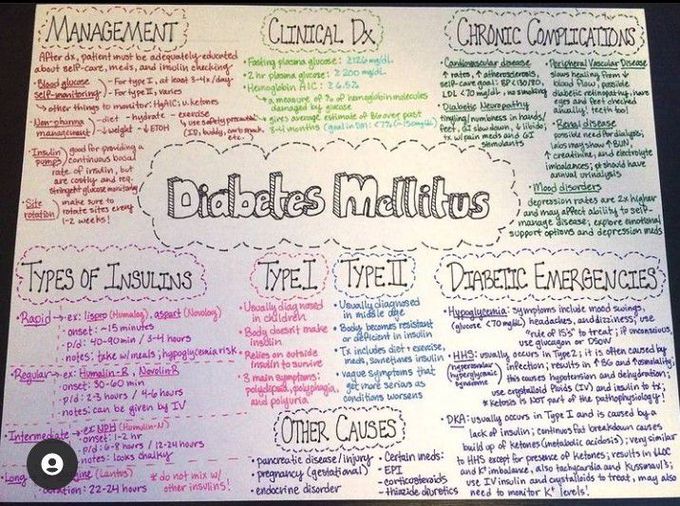 MANAGEMENT
After dx, patient must be adequately educated
about self-care, meds, and insulin checking.
• Blood glucose
self-monitoring
- For type I, at least 3-4x/day
- For type II, varies
↳ other things to monitor: HgA1C; u. ketones
• Non-pharma
management
- diet - hydrate - exercise
- ↓weight - ↓ETOH
↳ use safety
(ID, buddy, carb snack, etc.)
• Insulin
pumps
good for providing a
continuous basal
rate of insulin, but
are costly and req.
stringent glucose monitoring
• Site
rotation
make sure to
rotate sites every
1-2 weeks!
CLINICAL Dx
• Fasting plasma glucose: ≥126 mg/dL
• 2 hr plasma glucose: ≥ 200 mg/dL
• Hemoglobin A1C: ≥ 6.5%
↳ a measure of % of hemoglobin molecules
damaged by glucose
↳ gives average estimate of BG over past
3-4 months (goal in DM: <7%
CHRONIC COMPLICATIONS
• Cardiovascular disease
↑ rates, ↑ atherosclerosis,
self-care goal: BP <130/80,
LDL <70 mg/dL, no smoking
• Diabetic Neuropathy
tingling/numbness in hands/
feet, GI slowdown, ↓ libido,
tx w/ pain meds and GI
stimulants
• Peripheral Vascular Disease
slows healing from ↓
blood flow; possible
diabetic retinopathy, have
eyes and feet checked
annually! teeth too!
• Renal disease
possible need for dialysis,
labs may show ↑ BUN,
↑ creatinine, and electrolyte
imbalances; pt should have
annual urinalysis
• Mood disorders
depression rates are 2x higher
and may affect ability to self-
manage disease; explore emotional
support options and depression meds
Diabetes Mellitus
TYPES OF INSULINS
• Rapid → ex: lispro (Humalog), aspart (Novolog)
onset: ~15 minutes
p/d: 40-90 min / 3-4 hours
notes: take w/ meals; hypoglycemia risk
• Regular → ex: Humulin-R, Novolin-R
onset: 30-60 min
p/d: 2-3 hours / 4-6 hours
notes: can be given by IV
• Intermediate → ex NPH (Humulin-N)
onset: 1-2 hr
p/d: 6-8 hours / 12-24 hours
notes: looks chalky
• Long
(Lantus)
duration: 22-24 hours
* do not mix w/
other insulins!
TYPE I
• Usually diagnosed
in children
• Body doesn't make
insulin
• Relies on outside
insulin to survive
• 3 main symptoms:
polydipsia, polyphagia,
and polyuria
TYPE II
• Usually diagnosed
in middle age
• Body becomes resistant
or deficient in insulin
• Tx includes diet + exercise,
meds, sometimes insulin
• vague symptoms that
get more serious as
conditions worsens
OTHER CAUSES
• pancreatic disease/injury
• pregnancy (gestational)
• endocrine disorder
• Certain meds:
- EPI
- corticosteroids
- thiazide diuretics
DIABETIC EMERGENCIES
• Hypoglycemia: symptoms include mood swings,
(glucose <70 mg/dL) headaches, and dizziness; use
"rule of 15s" to treat; if unconscious,
use glucagon or D50W
• HHS: usually occurs in Type 2; it is often caused by
(hyperosmolar
hyperglycemic
syndrome)
infection; results in ↑BG and ↑osmolality;
this causes hypotension and dehydration;
use crystalloid fluids (IV) and insulin to tx;
* ketosis is NOT part of the pathophysiology!
• DKA: usually occurs in Type I and is caused by a
lack of insulin; continuous fat breakdown causes
build up of ketones (metabolic acidosis); very similar
to HHS except for presence of ketones; results in ↓LOC
and K+ imbalance, also tachycardia and Kussmaul's;
use IV insulin and crystalloids to treat, may also
need to monitor K+ levels!